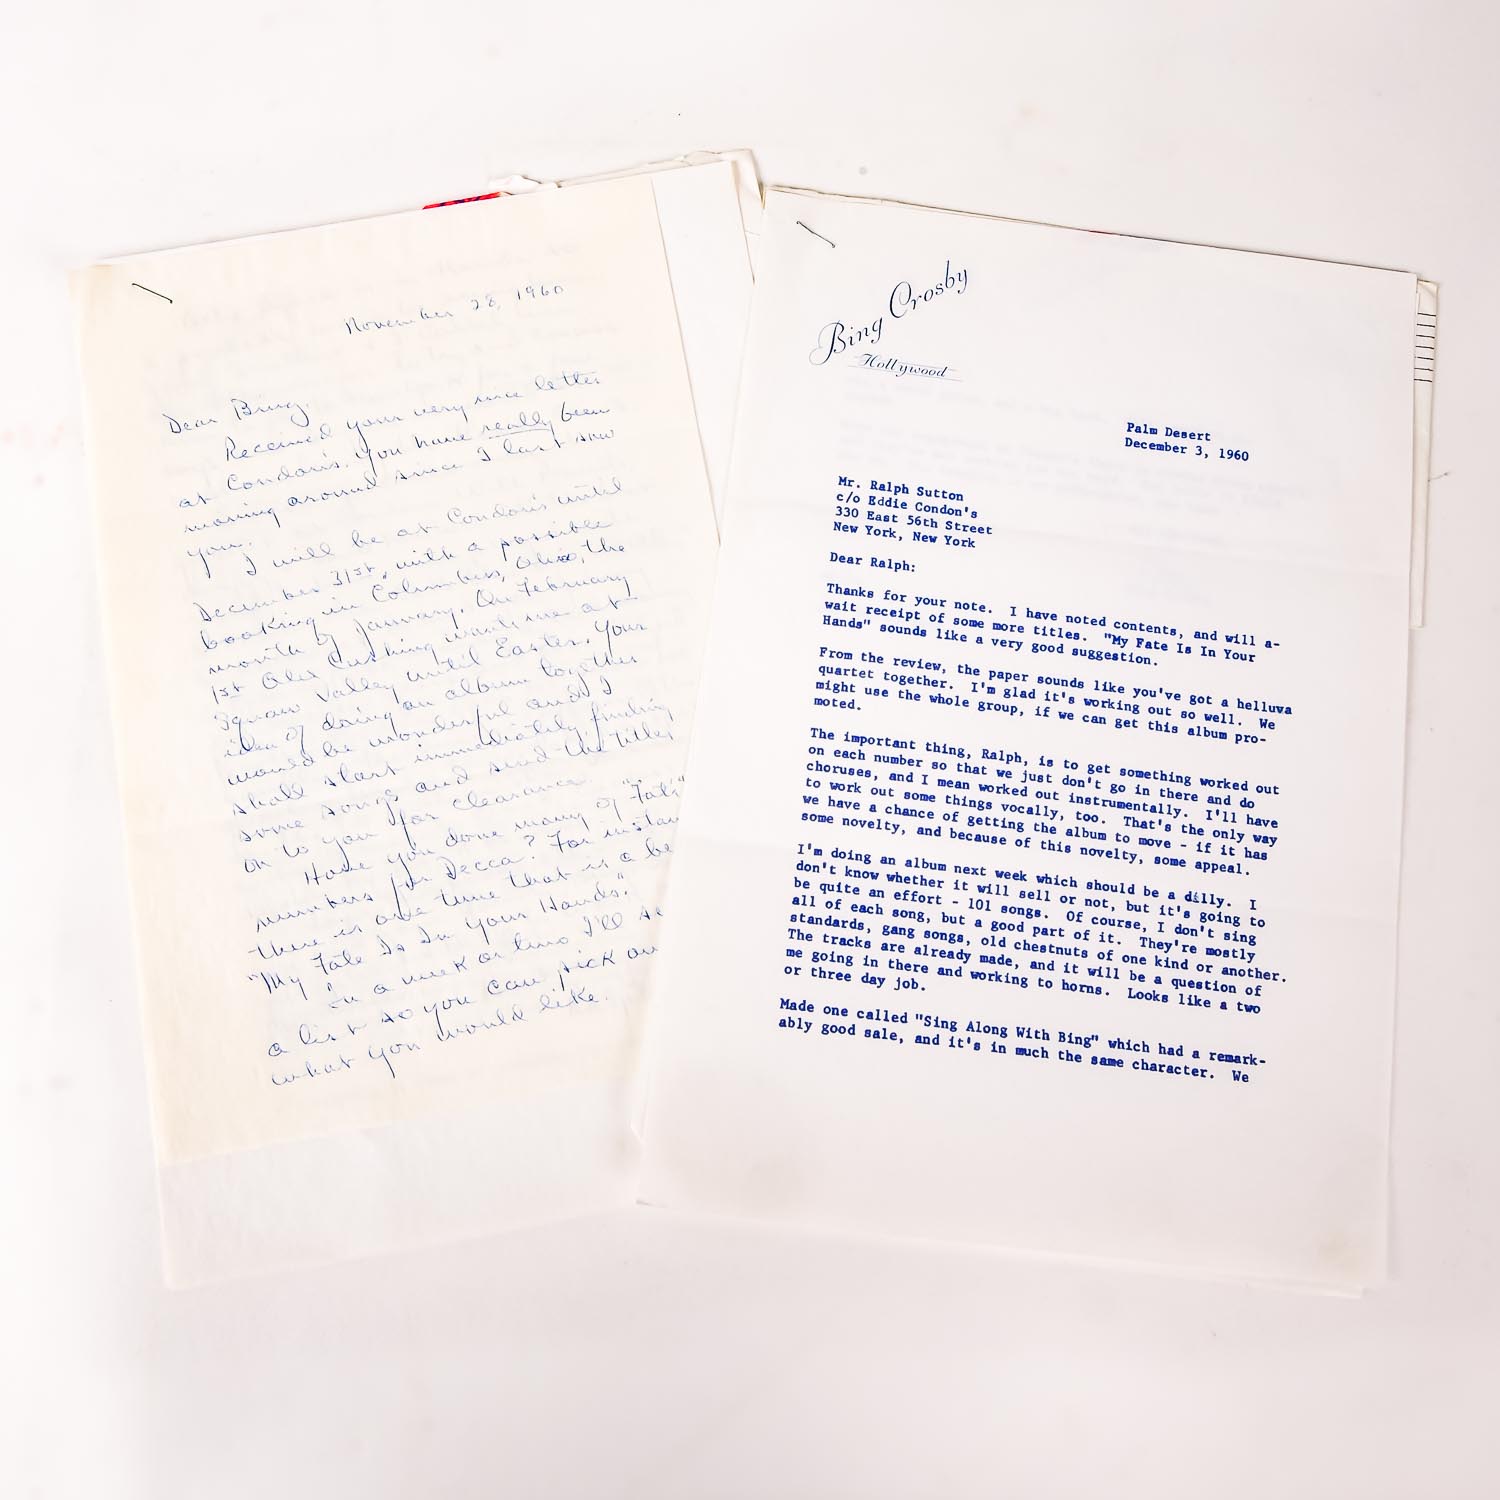 November 28, 1960
Dear Bing,
Received your very nice letter
at Condon's. You have really been
moving around since I last saw
you.
I will be at Condon's until
December 31st, with a possible
booking in Columbus, Ohio, the
month of January. On February
1st Alex Cushing wants me at
Squaw Valley until Easter. Your
idea of doing an album together
would be wonderful and I
shall start immediately, finding
some songs and send the titles
on to you for clearance.
Have you done many of "Fats'"
numbers for Decca? For instan
there is one tune that is a be
"My Fate Is In Your Hands."
In a week or two I'll se
a list so you can pick ou
what you would like.
Bing Crosby
Hollywood
Palm Desert
December 3, 1960
Mr. Ralph Sutton
c/o Eddie Condon's
330 East 56th Street
New York, New York
Dear Ralph:
Thanks for your note. I have noted contents, and will a-
wait receipt of some more titles. "My Fate Is In Your
Hands" sounds like a very good suggestion.
From the review, the paper sounds like you've got a helluva
quartet together. I'm glad it's working out so well. We
might use the whole group, if we can get this album pro-
moted.
The important thing, Ralph, is to get something worked out
on each number so that we just don't go in there and do
choruses, and I mean worked out instrumentally. I'll have
to work out some things vocally, too. That's the only way
we have a chance of getting the album to move - if it has
some novelty, and because of this novelty, some appeal.
I'm doing an album next week which should be a dilly. I
don't know whether it will sell or not, but it's going to
be quite an effort - 101 songs. Of course, I don't sing
all of each song, but a good part of it. They're mostly
standards, gang songs, old chestnuts of one kind or another.
The tracks are already made, and it will be a question of
me going in there and working to horns. Looks like a two
or three day job.
Made one called "Sing Along With Bing" which had a remark-
ably good sale, and it's in much the same character. We